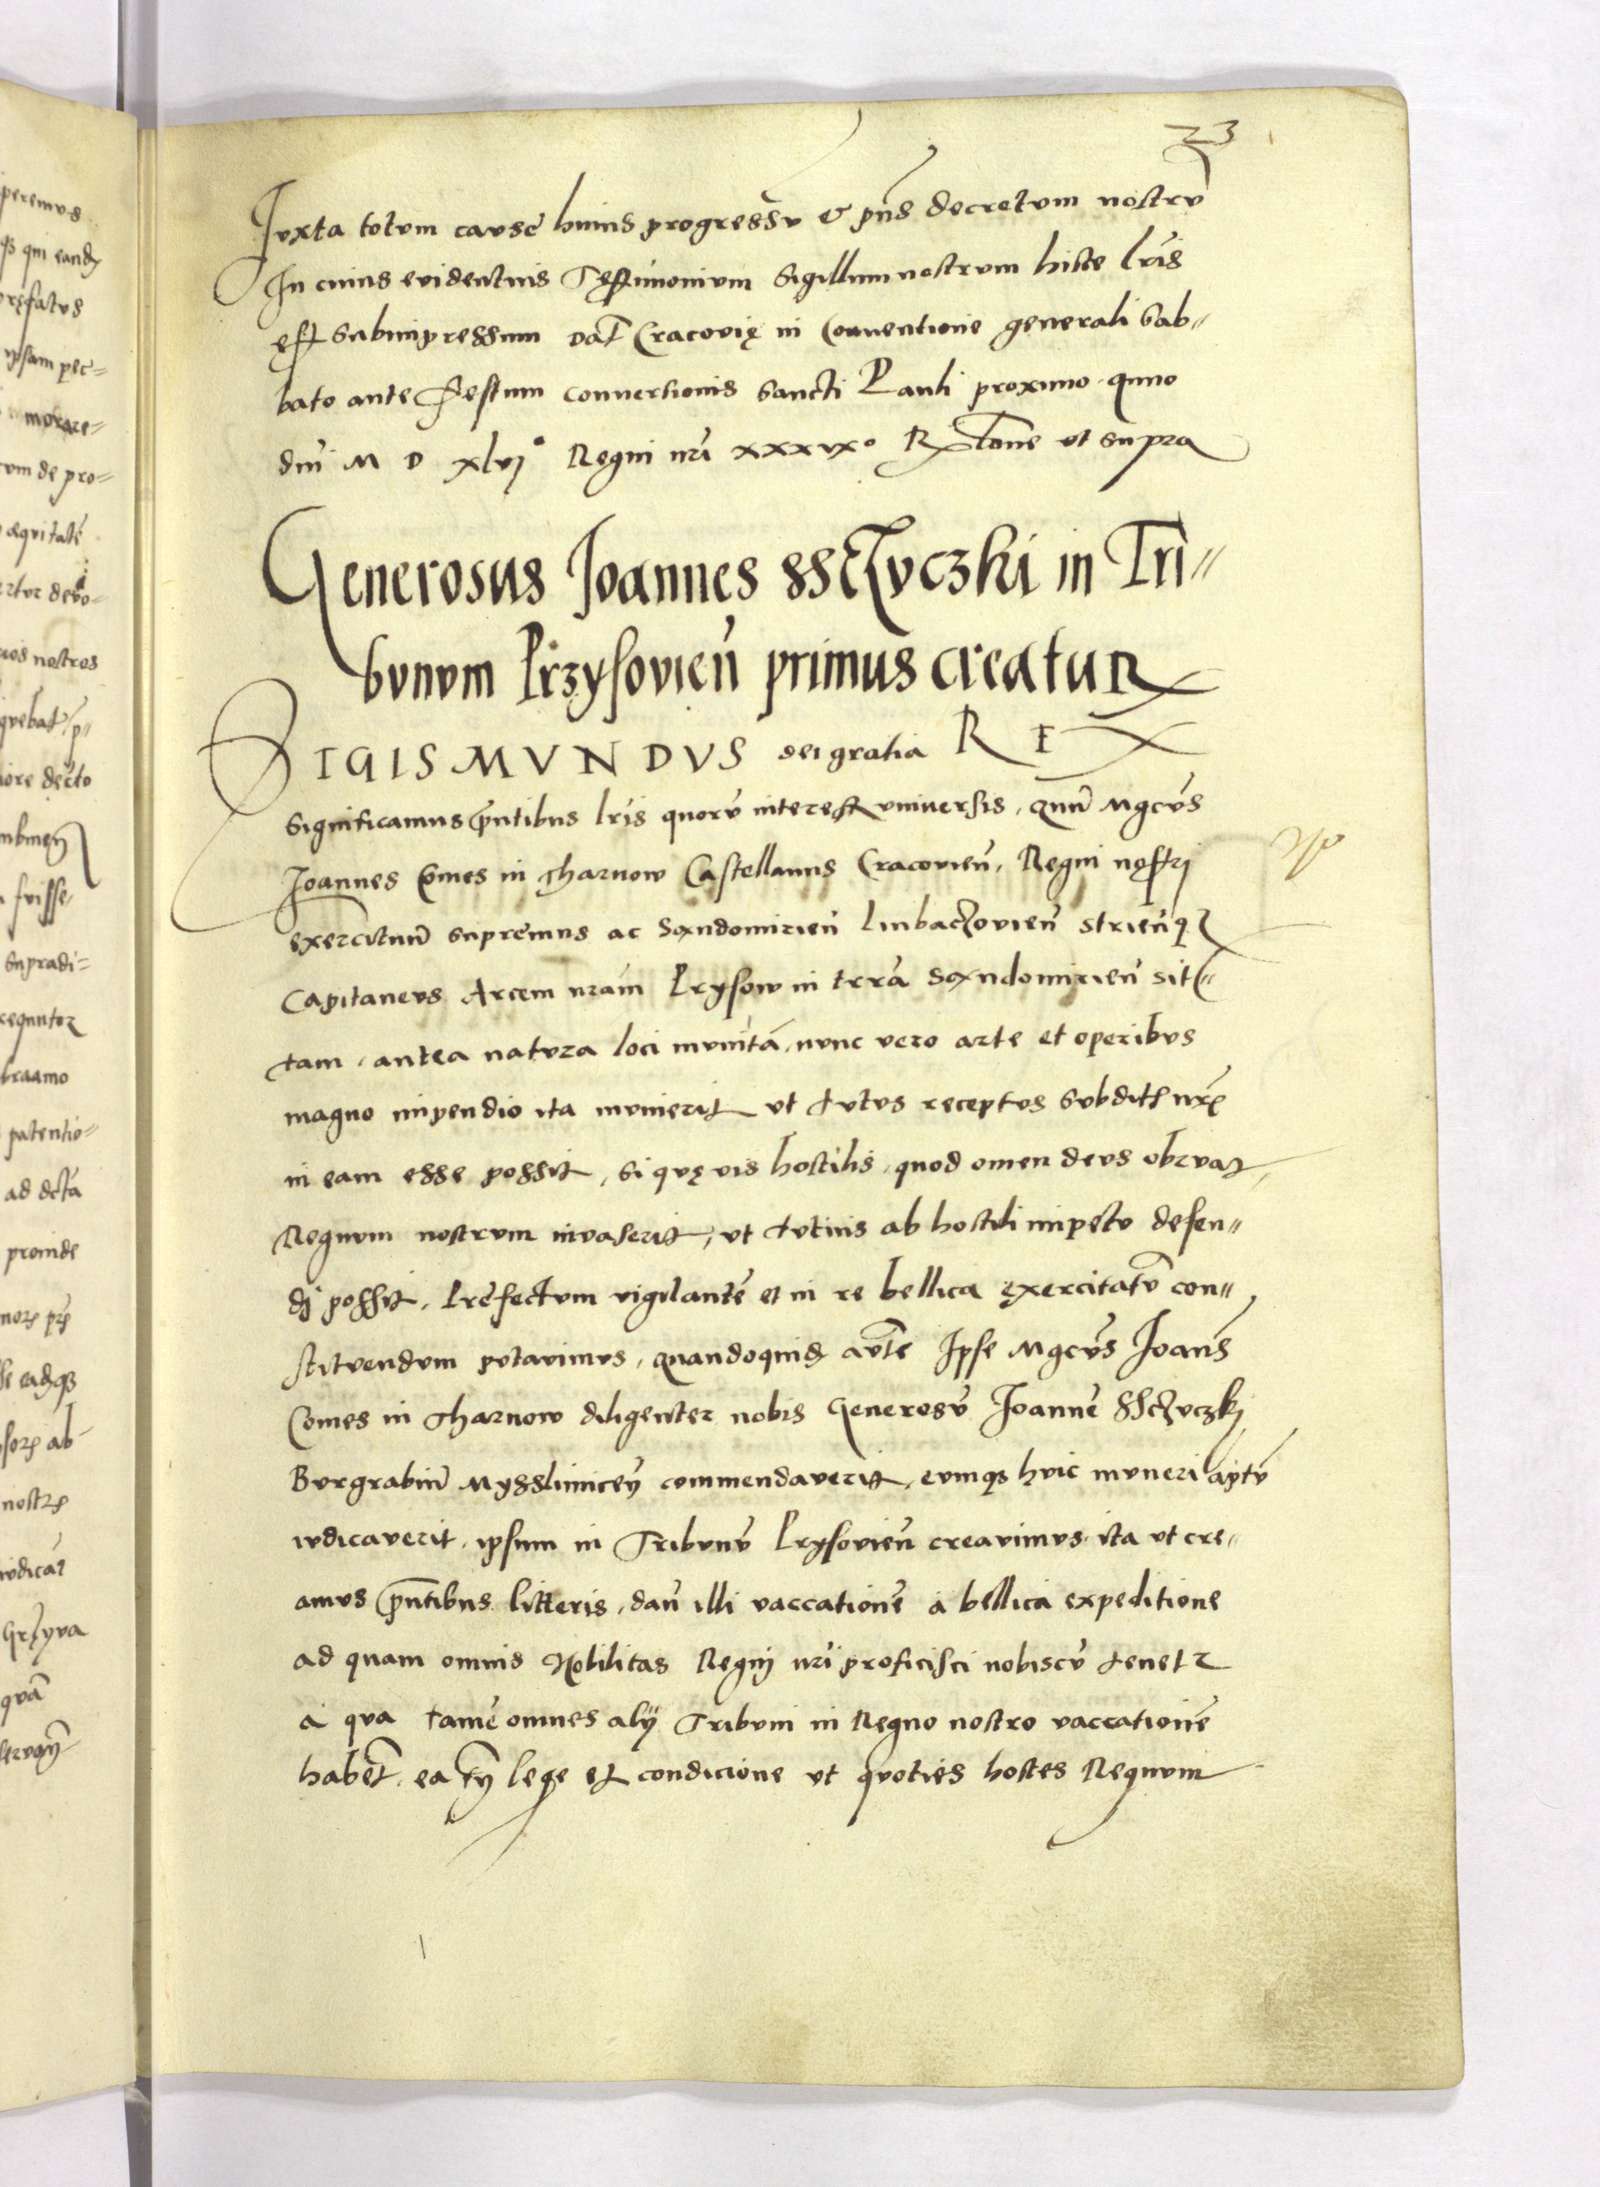 23
Iuxta totum causę huius progressū & pn̄s decretum nostrū
In cuius euidentius Testimonium Sigillum nostrum hisce lr̄is
est Subimpressum Dat̄ Cracovię in Conuentione generali Sab=
bato ante Festum conuersionis Sancti Pauli proximo Anno
dni M D xlvj° Regni nr̄i xxxix° Rela͞tione ut supra
Generosus Joannes SSczuczki in Tri=
bunum Przyſovien̄ primus creatur
SIGISMVNDVS dei gratia REX
Significamus pn̄tibus lr̄is quorū interest vniuersis, Quū Mgcūs
Joannes Comes in Tharnow Castellanus Cracovien̄, Regni nostri
exercituū supremus ac Sandomirien̄ Lubaczovien̄ Strien̄q
Capitaneus Arcem nr̄am Przysow in trr̄a Sandomirien̄ sit=
tam, antea natura loci munitā, nunc vero arte et operibus
magno impendio ita munierit ut tutus receptus Subditis nr̄is
in eam esse possit, si quę vis hostilis, quod omen deus obruat,
Regnum nostrum inuaserit, ut tutius ab hostili impetu defen=
di possit, Prefectum vigilantē et in re bellica exercitatū con=
stituendum putauimus, Quandoquidē aūte Ipse Mgcūs Joan̄s
Comes in Tharnow diligenter nobis Generosū Joannē SSczuczki
Burgrabiū Myssliniceñ commendauerit, eumqȝ huic muneri aptū
iudicauerit, ipsum in Tribunū Przysovien̄ creauimus, ita ut cre=
amus pn̄tibus litteris, dan̄ illi vaccationē a bellica expeditione
ad quam omnis Nobilitas Regni nr̄i proficisci nobiscū tenetr
a qua tamē omnes alij Tribuni in Regno nostro vaccationē
haben̄t, ea tn̄ lege et condicione ut quoties hostes Regnum